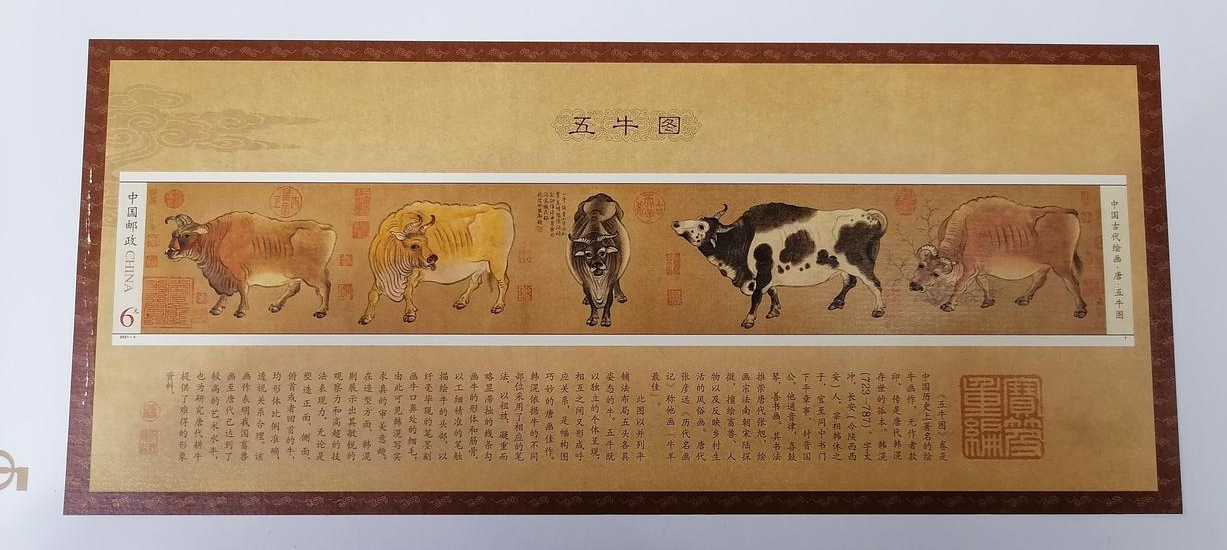 五牛图
中国邮政 CHINA
6元
2021-4
中国古代绘画·唐·五牛图
《五牛图》卷是
中国历史上著名的绘
牛画作，无作者款
印，传是唐代韩滉
存世的孤本。韩滉
（723—787）字太
冲，长安（今陕西西
安）人，宰相韩休之
子，官至同中书门
下平章事，封晋国
公。他通音律，喜鼓
琴，善书画，其书法
推崇唐代张旭，绘
画宗法南朝宋陆探
微，擅绘畜兽、人
物以及反映乡村生
活的风俗画。唐代
张彦远《历代名画
记》称他画“牛羊
最佳”。
此图以并列平
铺法布局五头各具
姿态的牛。五牛既
以独立的个体呈现，
相互之间又形成呼
应关系，是幅构图
巧妙的唐画佳作。
韩滉依据牛的不同
部位采用了相应的笔
法，以粗放、凝重而
略显滞拙的线条勾
画牛的形体和筋骨，
以工细精准的笔触
描绘牛的头部，以
纤毫毕现的笔墨刻
画牛口鼻处的细毛，
由此可见韩滉写实
求真的审美意趣。
在造型方面，韩滉
则展示出其敏锐的
观察力和高超的技
法表现力，无论是
塑造正面、侧面、
俯首或者回首的牛，
均形体比例准确，
透视关系合理。该
画作表明我国畜兽
画至唐代已达到了
较高的艺术水平，
也为研究唐代耕牛
提供了难得的形象
资料。